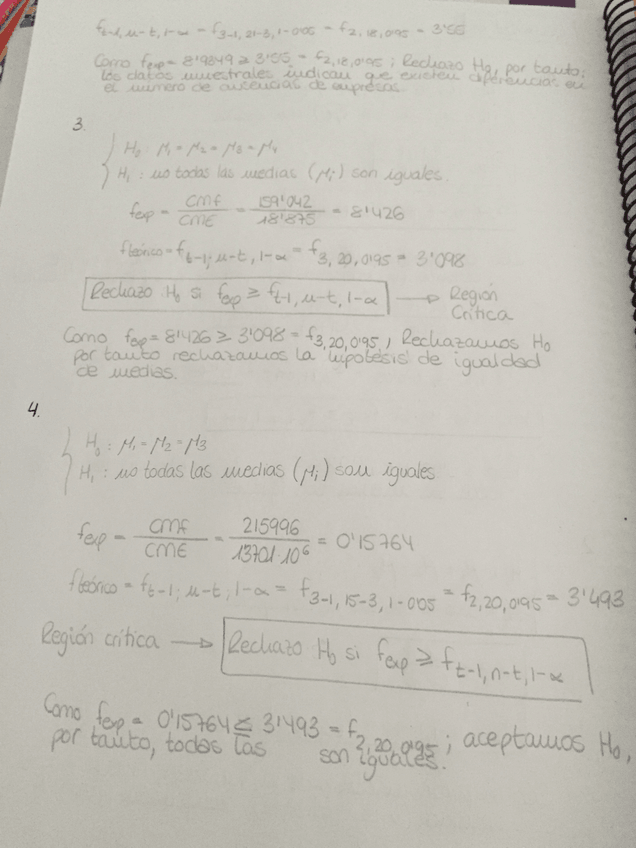 f t-1, n-t, 1-α = f 3-1, 21-3, 1-0'05 = f 2, 18, 0'95 = 3'55
Como fexp = 8'9849 ≥ 3'55 = f 2, 18, 0'95 ; Rechazo H0, por tanto,
los datos muestrales indican que existen diferencias en
el número de ausencias de empresas.
3.
H0 : μ1 = μ2 = μ3 = μ4
H1 : no todas las medias (μi) son iguales.
fexp = CMF / CME = 159'042 / 18'875 = 8'426
f teórico = f t-1; n-t, 1-α = f 3, 20, 0'95 = 3'098
Rechazo H0 si fexp ≥ f t-1, n-t, 1-α → Región
Crítica
Como fexp = 8'426 ≥ 3'098 = f 3, 20, 0'95, Rechazamos H0
por tanto rechazamos la hipótesis de igualdad
de medias.
4.
H0 : μ1 = μ2 = μ3
H1 : no todas las medias (μi) son iguales.
fexp = CMF / CME = 215996 / 13701·10^6 = 0'15764
f teórico = f t-1; n-t; 1-α = f 3-1, 15-3, 1-0'05 = f 2, 20, 0'95 = 3'493
Región crítica → Rechazo H0 si fexp ≥ f t-1, n-t, 1-α
Como fexp = 0'15764 ≤ 3'493 = f 2, 20, 0'95 ; aceptamos H0,
por tanto, todas las son iguales.